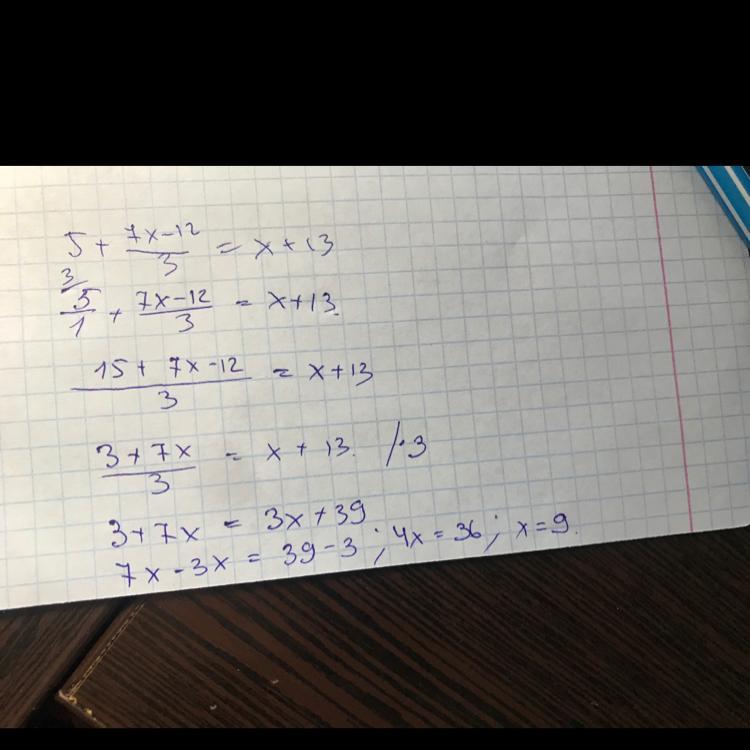 5 + (7x-12)/3 = x+13
3/
5/1 + (7x-12)/3 = x+13.
(15 + 7x-12)/3 = x+13
(3+7x)/3 = x + 13. /·3
3+7x = 3x+39
7x-3x = 39-3; 4x=36; x=9.